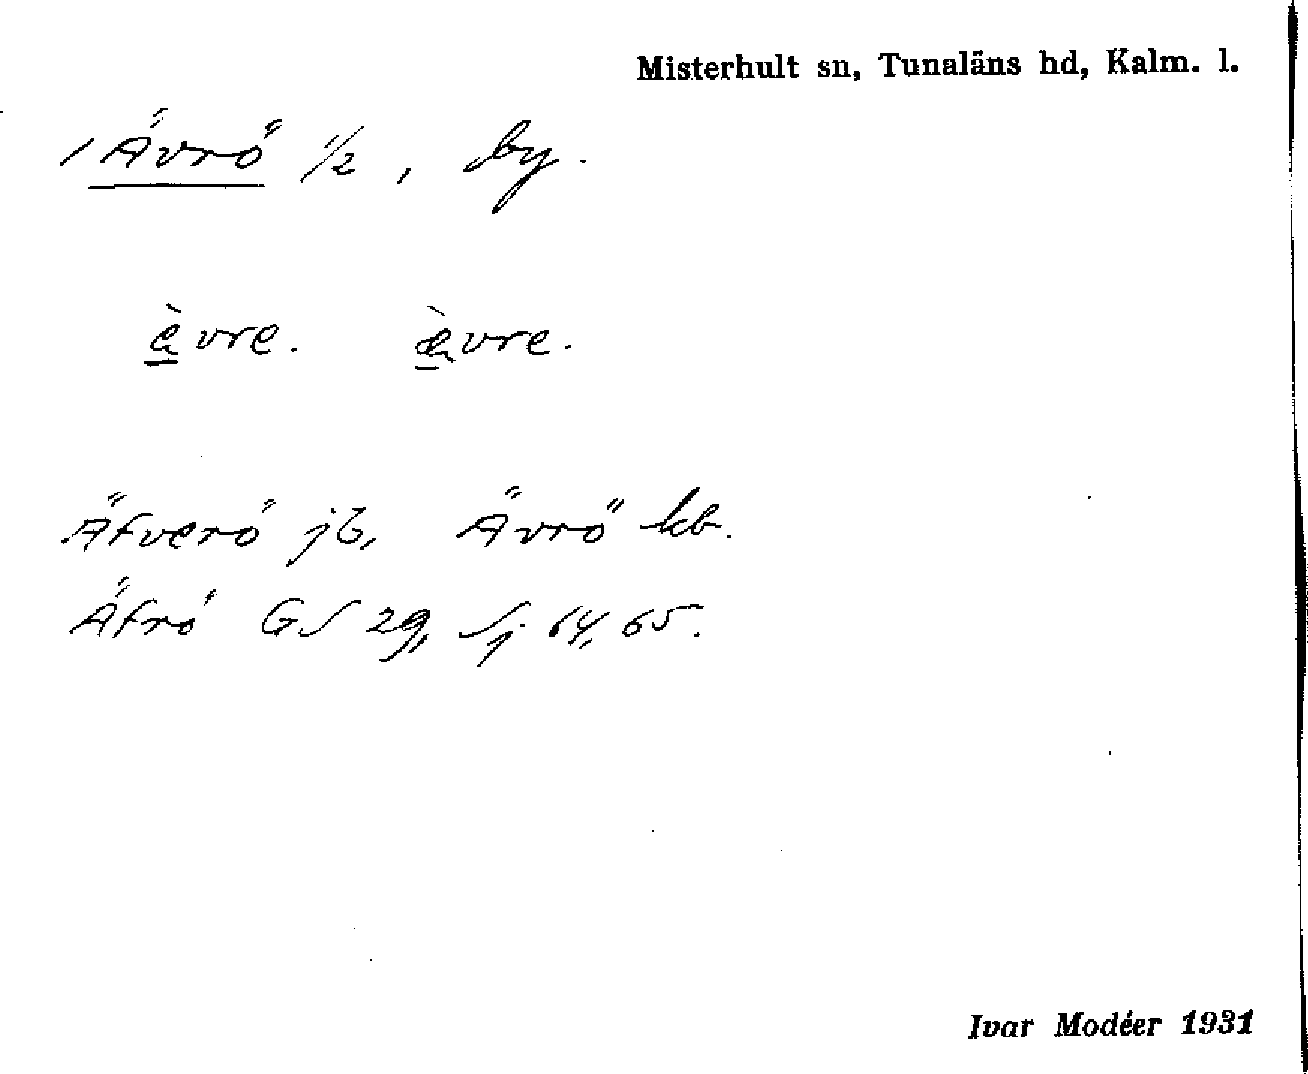 Misterhult sn, Tunaläns hd, Kalm. l.
/ Ävrö 1/2, by.
èvre. ævre.
Äfverö jb, Ävrö kb.
Äfrö GS 29, Sj 64, 65.
Ivar Modéer 1931